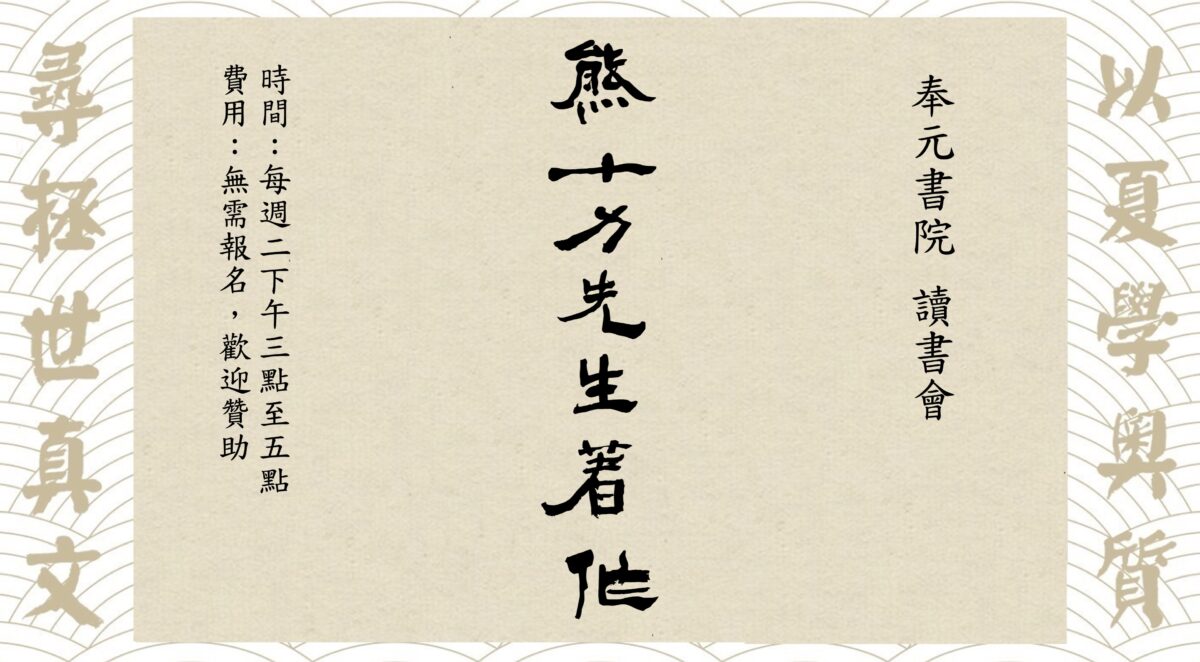 以夏學奧質
奉元書院 讀書會
熊十力先生著作
時間：每週二下午三點至五點
費用：無需報名，歡迎贊助
尋拯世真文